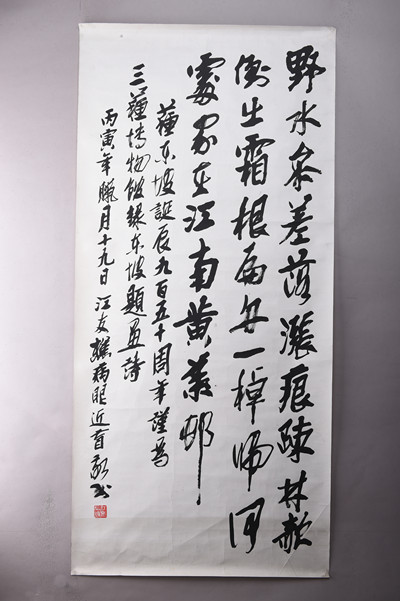 野水參差落漲痕疎林欹
倒出霜根扁舟一棹歸何
處家在江南黃葉邨
蘇東坡誕辰九百五十周年謹為
三蘇博物館錄東坡題畫詩
丙寅年臘月十九日江友樵病眼近盲敬書